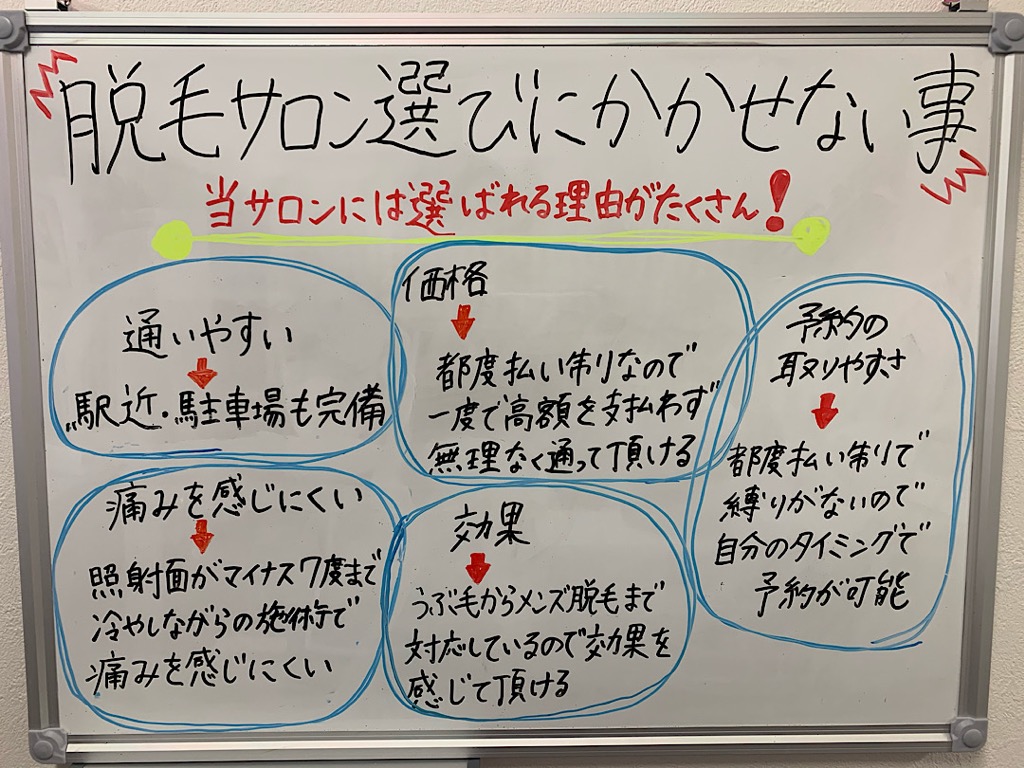 脱毛サロン選びにかかせない事
当サロンには選ばれる理由がたくさん！
通いやすい
駅近・駐車場も完備
価格
都度払い制りなので
一度で高額を支払わず
無理なく通って頂ける
予約の
取りやすさ
都度払い制りで
縛りがないので
自分のタイミングで
予約が可能
痛みを感じにくい
照射面がマイナス7度まで
冷やしながらの施術で
痛みを感じにくい
効果
うぶ毛からメンズ脱毛まで
対応しているので効果を
感じて頂ける